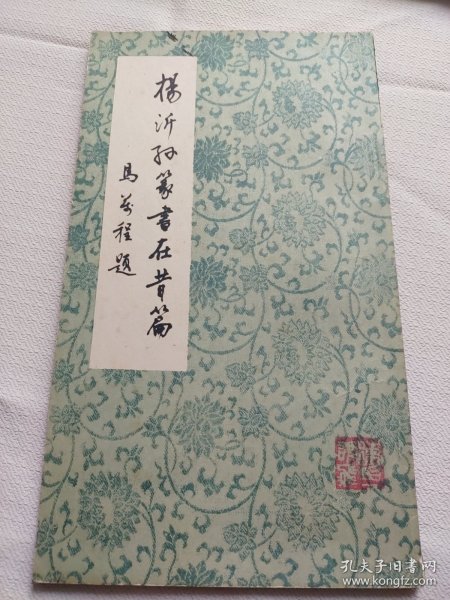 楊沂孙篆書在昔篇
馬萬程題
孔夫子旧书网
www.kongfz.com